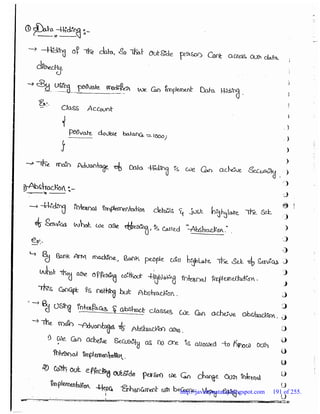 ① Data -Hiding :-
→ -Hiding of the data, So that outside person Cant access our data
directly.
→ By using private modifier we Can implement Data Hiding.
Ex:- Class Account
{
private double balance = 1000;
}
→ The main Advantage of Data Hiding is we Can achieve Security.
Abstraction :-
→ -Hiding internal implementation details & just highlight the set
of Services what we are offering, is called "Abstraction".
Ex:-
By Bank ATM machine, Bank people will highlight the set of Services
what they are offering without highlighting internal implementation.
This Concept is nothing but Abstraction.
→ By using interfaces & abstract classes we Can achieve abstraction.
→ The main -Advantages of Abstraction are.
1) we Can achieve Security as no one is allowed to know our
internal implementation.
2) with out effecting outside person we Can change our internal
implementation. Hence Enhancement will become Very easy.
191 of 255.